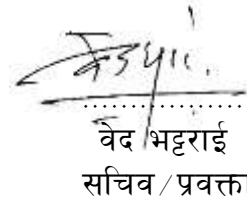 ..................
वेद भट्टराई
सचिव/प्रवक्ता